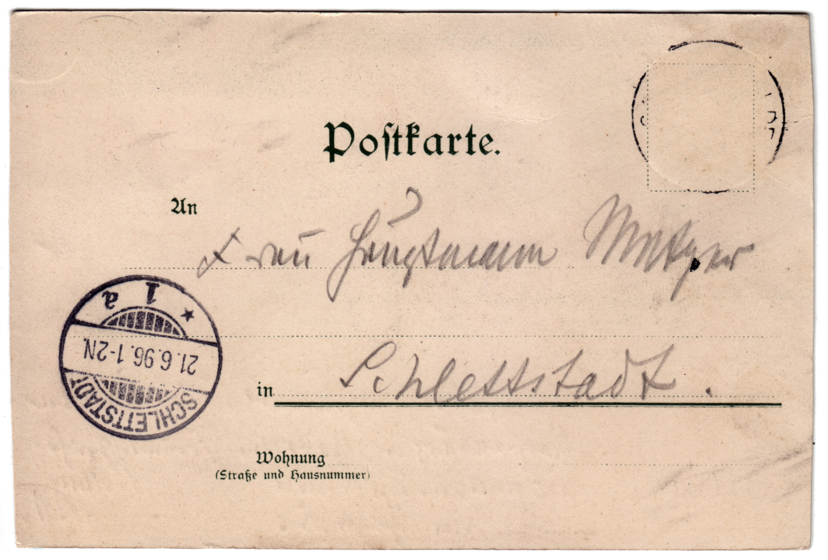 Postkarte.
An
Frau Hauptmann Metzger
in Schlettstadt.
Wohnung
(Straße und Hausnummer)
SCHLETTSTADT
21.6.96.1-2N.
* 1 a